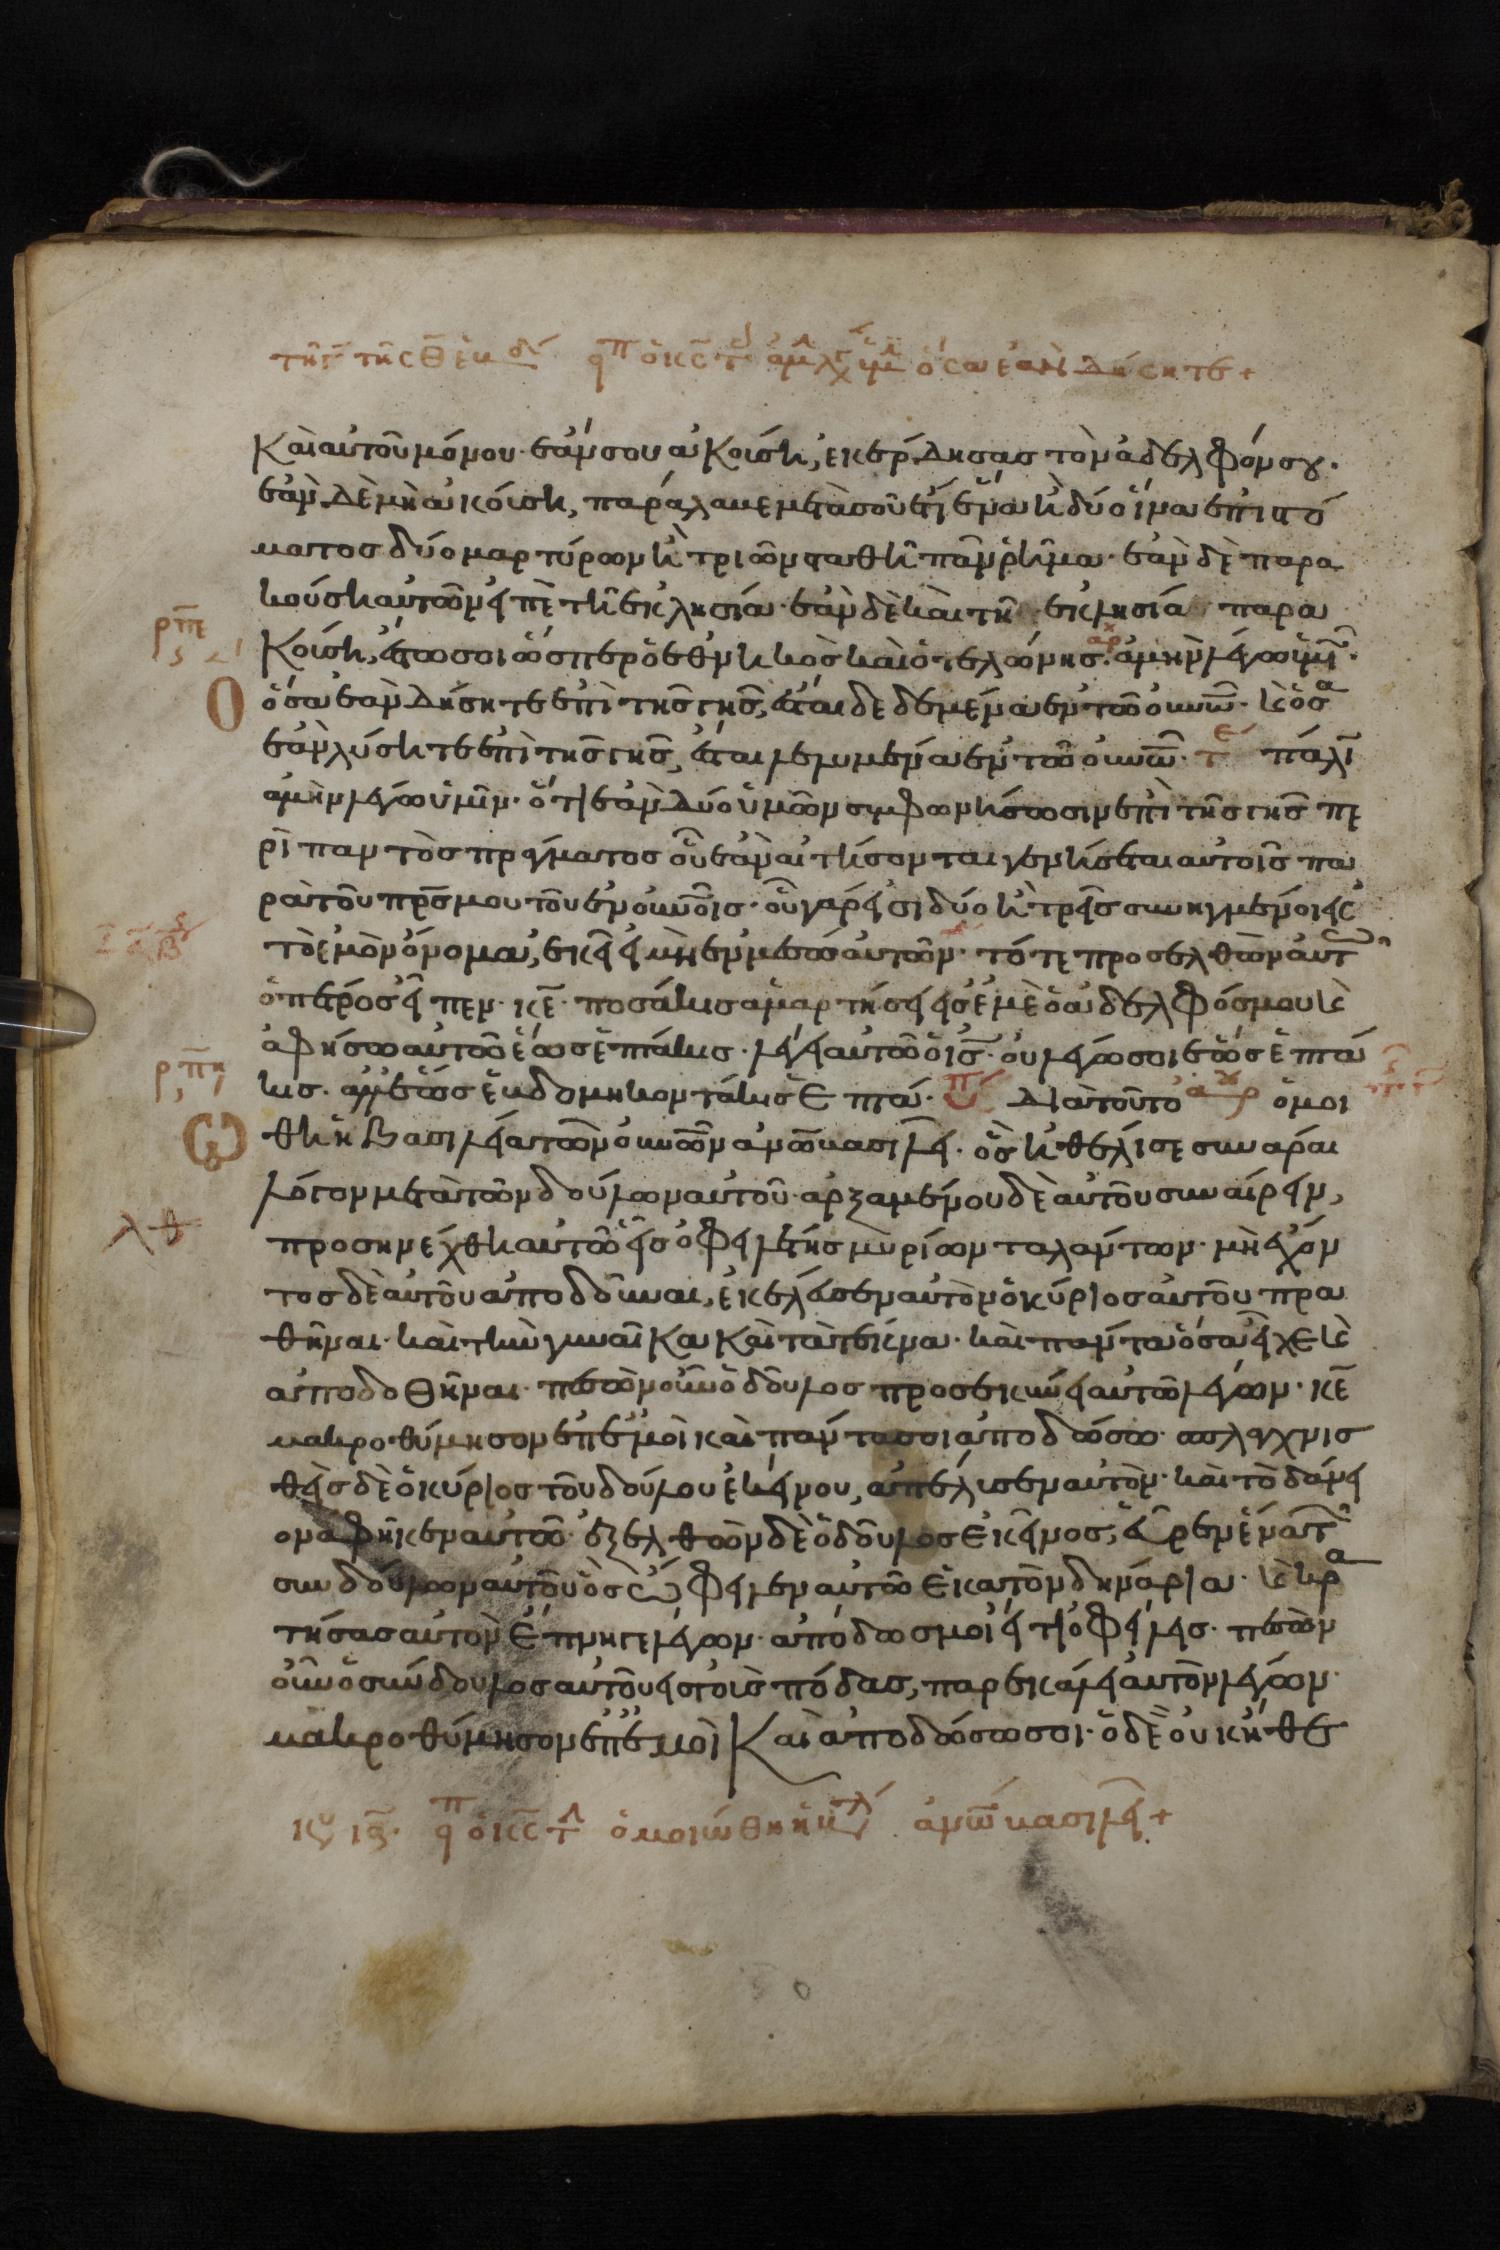 τῆ ϛ τῆς θ ἑβδ ειπ ὁ κς τ ἀμ λγ ὑμ ὅσα ἐὰν δήσητε +
Καὶ αὐτοῦ μόνου· ἐάν σου ἀκούση, ἐκέρδησας τὸν ἀδελφόν σου·
ἐὰν δὲ μὴ ἀκούση, παράλαβε μετὰ σοῦ ἔτι ἕνα ἢ δύο ἵνα ἐπὶ στό
ματος δύο μαρτύρων ἢ τριῶν σταθῆ πᾶν ῥῆμα· ἐὰν δὲ παρα
κούση αὐτῶν εἰπὲ τῆ ἐκλησία· ἐὰν δὲ καὶ τῆ ἐκλησία παρα
ρπε
Κούση, ἔστω σοι ὥσπερ ὁ ἐθνικὸς καὶ ὁ τελώνης· αρχ ἀμὴν λέγω ὑμῖν·
ὅσα ἐὰν δήσητε ἐπὶ τῆς γῆς, ἔσται δεδεμένα ἐν τῶ οὐνω· κ ὅσα
ἐὰν λύσητε ἐπὶ τῆς γῆς, ἔσται λελυμένα ἐν τῶ οὐνω· τε πάλι
ἀμὴν λέγω ὑμῖν· ὅτι ἐὰν δύο ὑμῶν συμφωνήσωσιν ἐπὶ τῆς γῆς πε
ρὶ παντὸς πράγματος οὗ ἐὰν αἰτήσονται γενήσεται αὐτοῖς πα
ρὰ τοῦ πρς μου τοῦ ἐν οὐνοῖς· οὗ γάρ εἰσι δύο ἢ τρεῖς συνηγμένοι εἰς
τὸ ἐμὸν ὄνομα, ἐκεῖ εἰμὴ ἐν μέσω αὐτῶν· τότε προσελθὼν αὐτ
ὁ πέτρος εἶπεν· κε· ποσάκις ἁμαρτήσει εἰς ἐμὲ ὁ ἀδελφός μου κ
ἀφήσω αὐτῶ ἕως ἑπτάκις· λέγει αὐτῶ ὁ ις· οὐ λέγω σοι ἕως ἑπτά
ρπη
κις· ἀλλ ἕως ἑβδομηκοντάκις ἑπτά· Διὰ τοῦτο ὁμοι
θη ἡ βασιλεία τῶν οὐνῶν ἀνω βασιλεῖ· ὃς ἠθέλησε συναρᾶι
λόγον μετὰ τῶν δούλων αὐτοῦ· ἀρξαμένου δὲ αὐτοῦ συναίρειν,
λθ
προσηνέχθη αὐτῶ εἷς ὀφειλέτης μυρίων ταλάντων· μὴ ἔχον
τος δὲ αὐτοῦ ἀποδοῦναι, ἐκέλευσεν αὐτὸν ὁ κύριος αὐτοῦ πρα
θῆναι· καὶ τὴν γυναῖκα Καὶ τὰ τέκνα· καὶ πάντα ὅσα εἶχε κ
ἀποδοθῆναι· πεσὼν οὖν ὁ δοῦλος προσεκύνει αὐτῶ λέγων· κε
μακροθύμησον ἐπ ἐμοὶ καὶ πάντα σοι ἀποδώσω· σπλαγχνισ
θεὶς δὲ ὁ κύριος τοῦ δούλου ἐκείνου, ἀπέλυσεν αὐτὸν· καὶ τὸ δάνει
ον ἀφῆκεν αὐτῶ· ἐξελθὼν δὲ ὁ δοῦλος ἐκεῖνος, εὗρεν ἕνα τ
συνδούλων αὐτοῦ ὃς ὤφειλεν αὐτῶ ἑκατὸν δηνάρια· κ κρα
τήσας αὐτὸν ἔπνιγε λέγων· ἀπόδως μοι εἴ τι ὀφείλεις· πεσὼν
οὖν ὁ σύνδουλος αὐτοῦ εἰς τοὺς πόδας, παρεκάλει αὐτὸν λέγων·
μακροθύμησον ἐπ ἐμοὶ Καὶ ἀποδώσω σοι· ὁ δὲ οὐκ ἤθε
κυ ια· ειπ ὁ κς τ ὁμοιώθη ἡ β ἀνω βασιλεῖ +